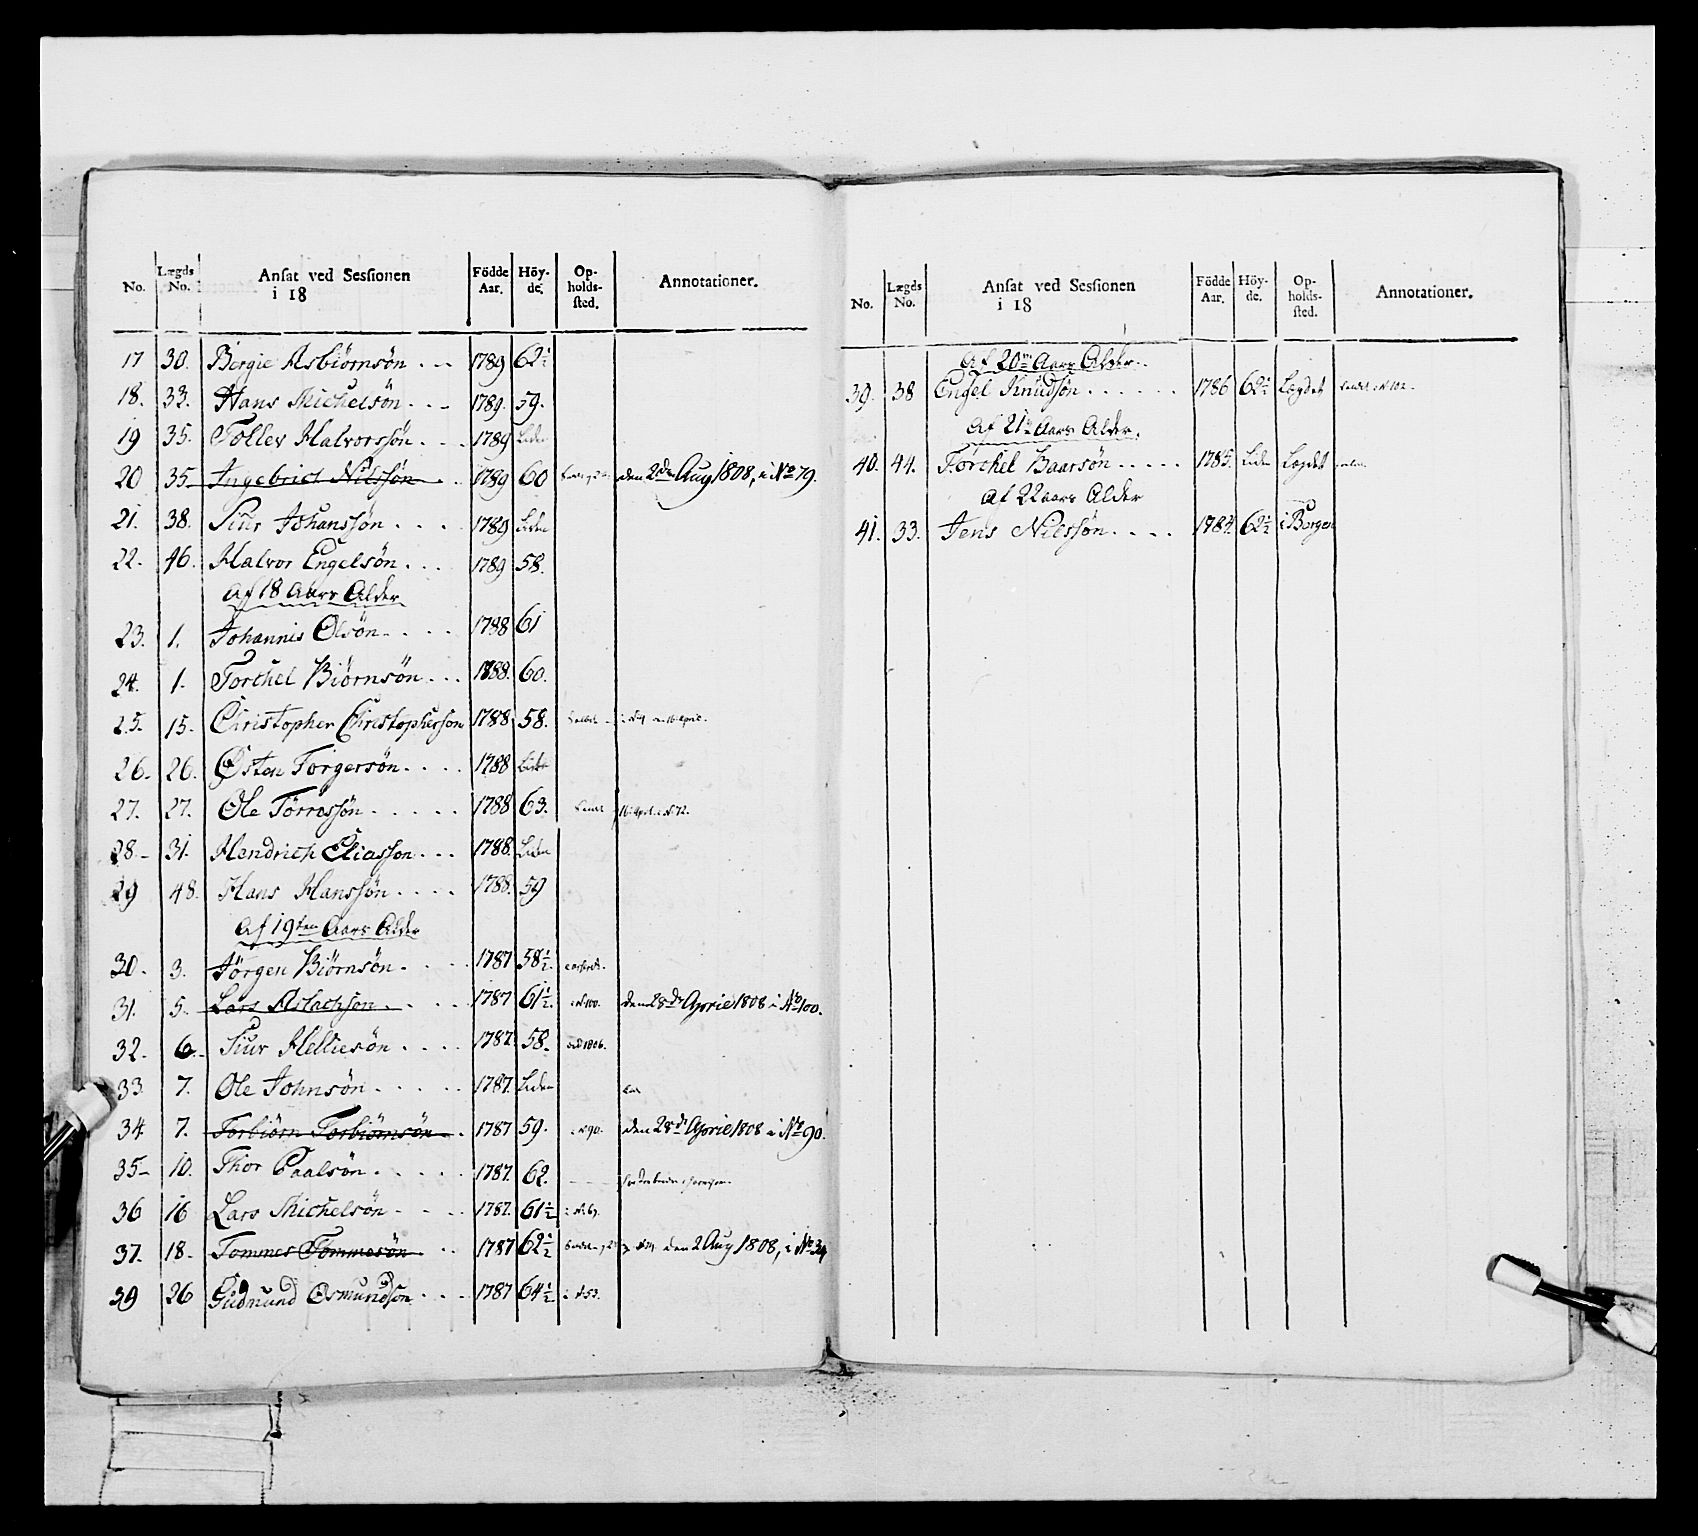 No. Lægds No. Ansat ved Sessionen i 18 Födde Aar. Höyde. Opholdssted. Annotationer.
17 30. Bergie Asbiörnsön 1789 62½
18. 33. Hans Michelsön 1789. 59.
19 35. Tollev Halvorssön 1789 Liden
20 35 Ingebrict Nilssön 1789 60 den 2den Aug 1808, i No 79.
21. 38. Siur Johanssön 1789 Liden
22. 46. Halvor Engelsön 1789 58.
Af 18 Aars Alder
23. 1. Johannis Olsön 1788 61
24. 1. Torchel Biörnsön 1788. 60.
25. 15. Christopher Christophersön 1788. 58. 16 April.
26. 26. Östen Torgersön 1788 Liden
27. 27. Ole Törressön 1788 63. 16 April i No 72.
28. 31. Hendrich Eliassøn 1788. Liden
29 48. Hans Hanssön 1788. 59
Af 19ten Aars Alder
30. 3. Jörgen Biörnsön 1787 58½
31. 5. Lars Aslachsøn 1787 61½ i No 100. den 28de Aprie 1808 i No 100.
32. 6. Siur Helliesön 1787. 58. 1806.
33. 7. Ole Johnsön 1787. Liden
34 7. Torbiörn Torbiörnsön 1787 59. i No 90. den 28de Aprie 1808 i No 90.
35 10. Thor Paalsön 1787. 62.
36 16 Lars Michelsön 1787. 61½
37. 18. Tommes Tommesön 1787 62½ den 2 Aug 1808, i No 39
39 26 Gudnund Osmundsøn 1787 64½ i No 53.
No. Lægds No. Ansat ved Sessionen i 18 Födde Aar. Höyde. Opholdssted. Annotationer.
Af 20de Aars Alder
39. 38 Engel Knudsön 1786 62½ Lægdet
Af 21de Aars Alder.
40. 44. Törchel Baarsön 1785. Liden Lægdet
Af 22 aars Alder
41. 33. Jens Nilssön 1784. 62½ i Bergen